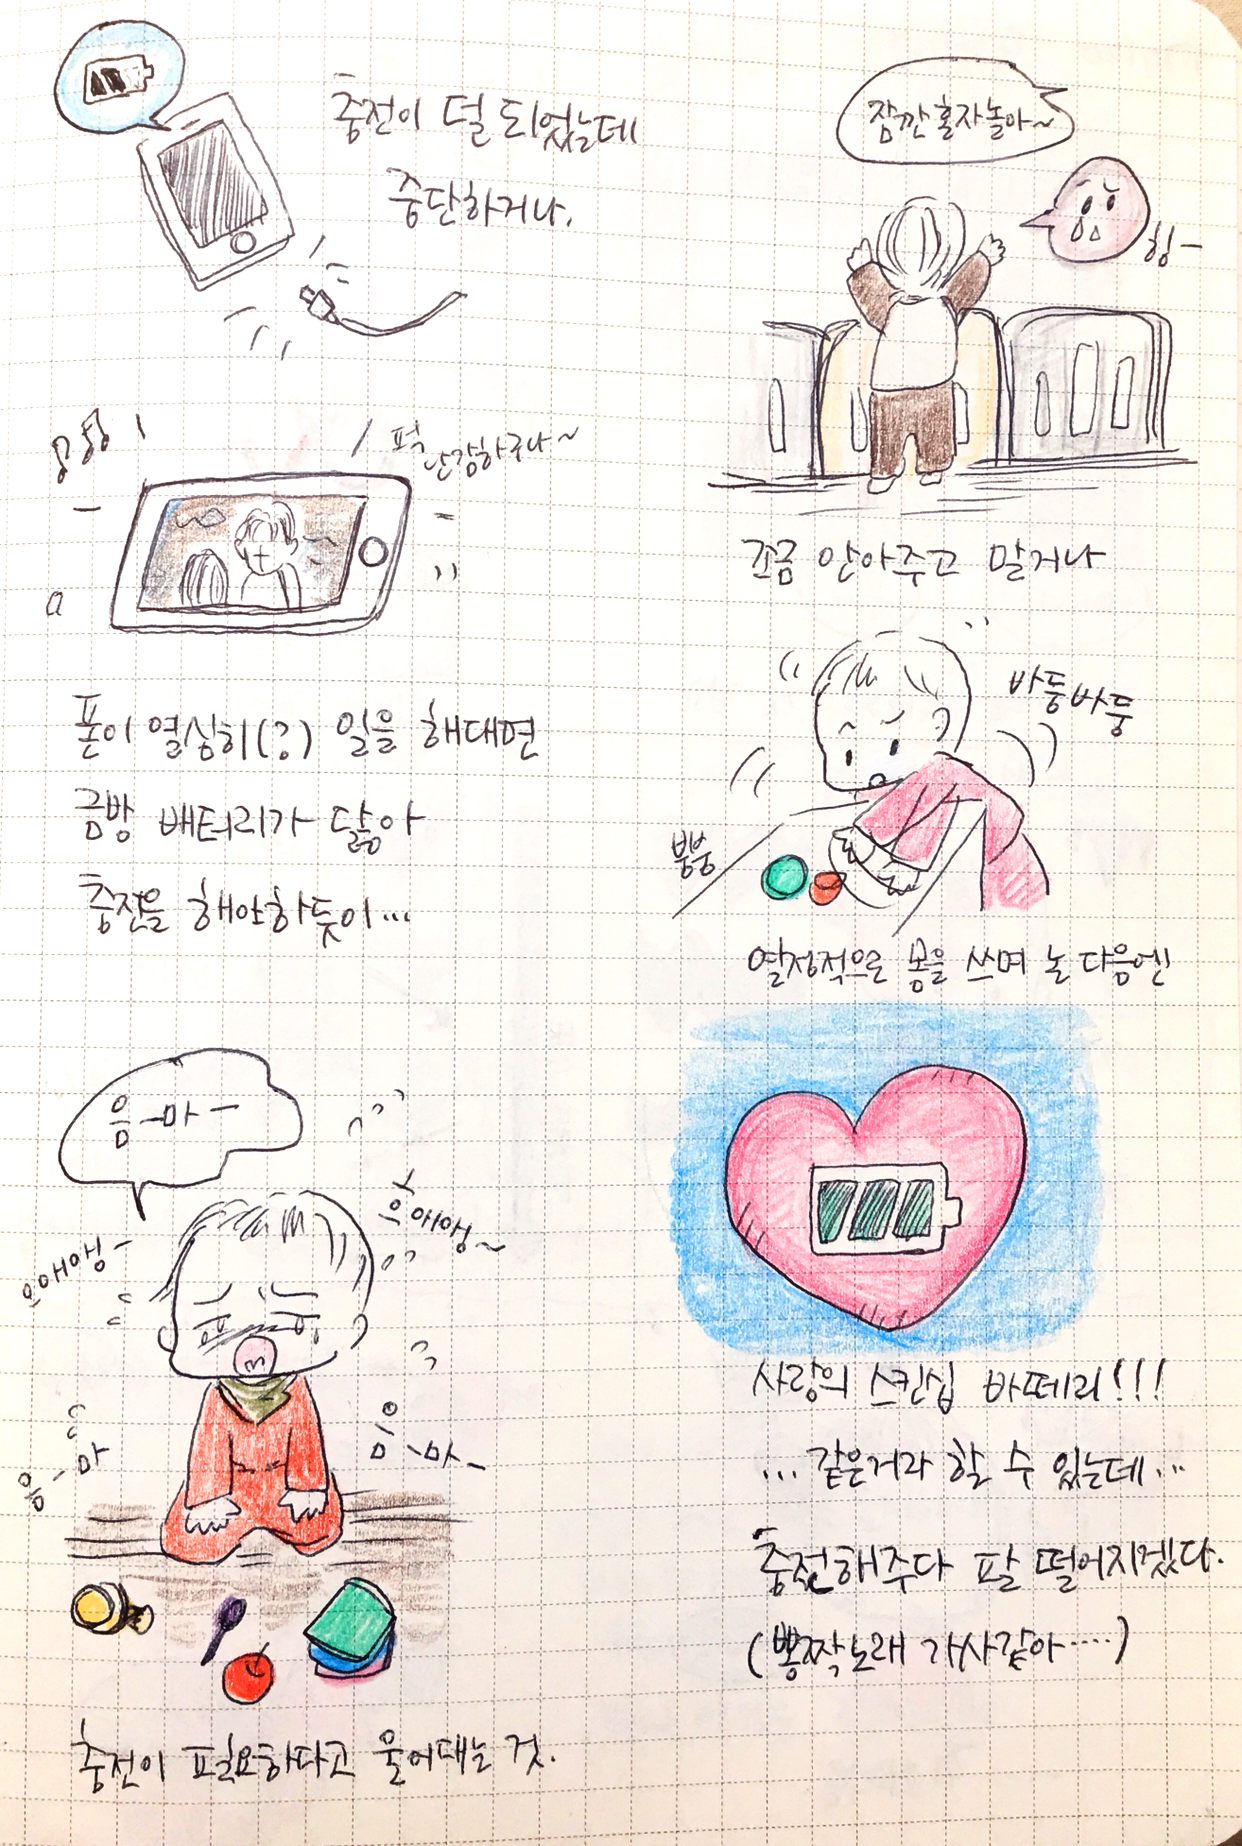 충전이 덜 되었는데
중단하거나.
잠깐 혼자 놀아~
힝-
조금 안아주고 말거나
폰이 열심히(?) 일을 해대면
금방 배터리가 닳아
충전을 해야하듯이...
바둥바둥
뿡뿡
열정적으로 몸을 쓰며 논 다음엔
음-마-
으애앵-
으애앵~
음-마
음-마-
충전이 필요하다고 울어대는 것.
사랑의 스킨십 바떼리!!!
...같은거라 할 수 있는데...
충전해주다 팔 떨어지겠다.
(뽕짝노래 가사같아....)